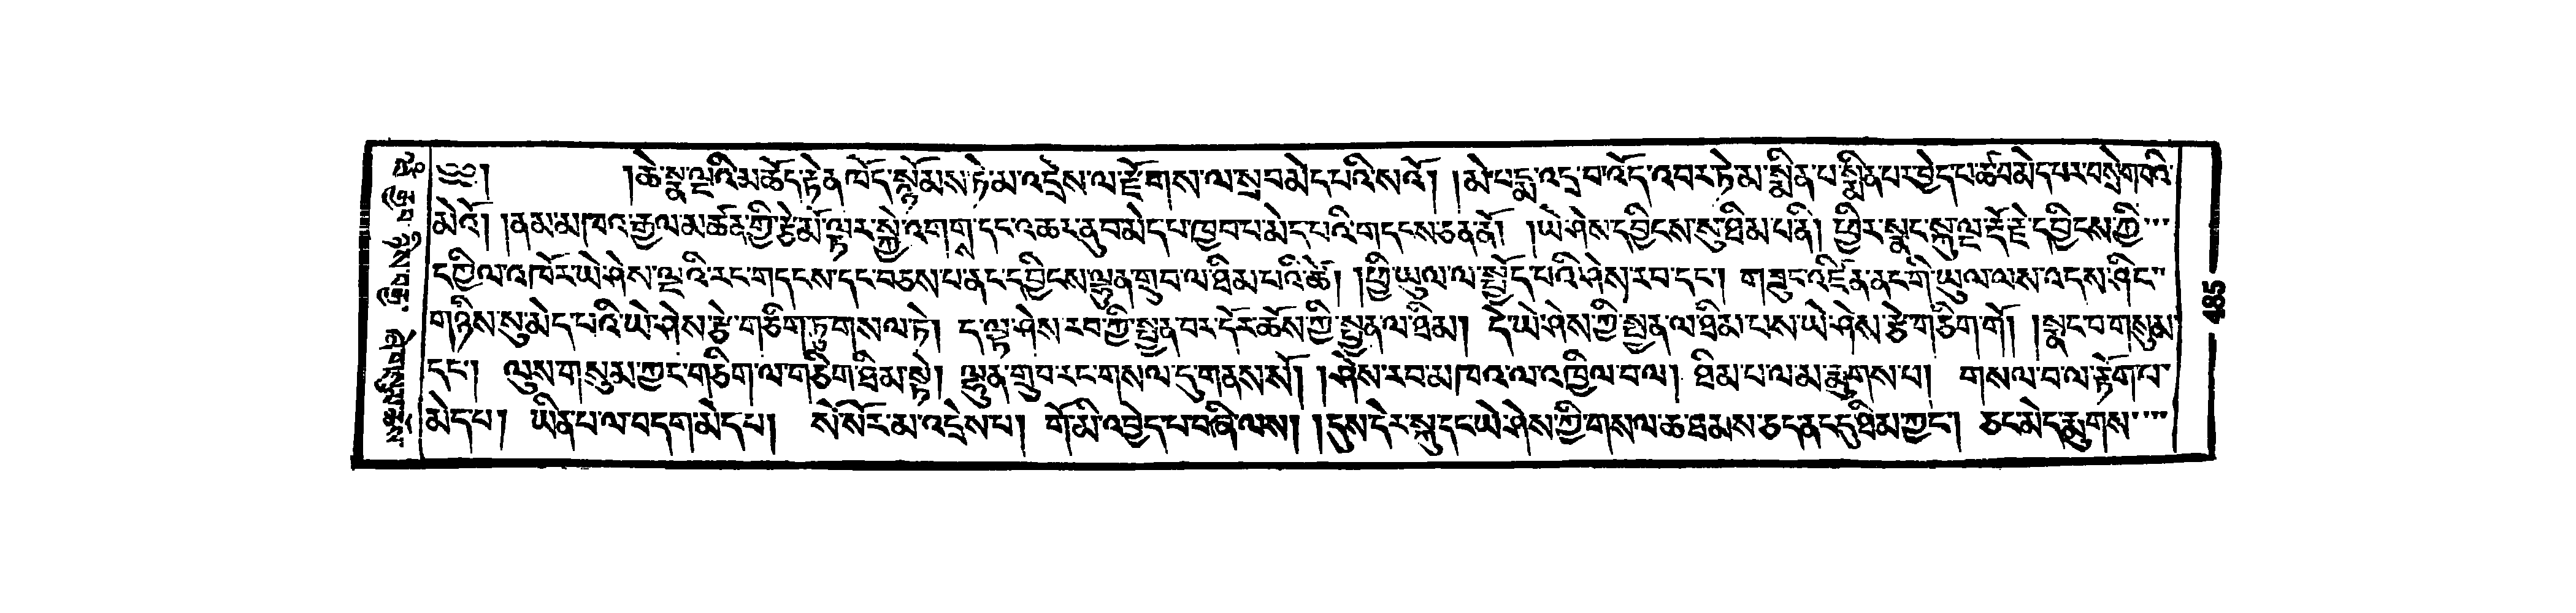 ༄༅། །ཆེ་སྣ་ལྔའི་མཆོད་རྟེན་ཁོད་སྙོམས་ཏེ་མ་འདྲེས་ལ་རྫོགས་ལ་སྲབ་མེད་པའི་སའོ། །མེ་པདྨ་འདྲ་བ་འོད་འབར་ཏེ་མ་སྨིན་པ་སྨིན་པར་བྱེད་པ་ཚབ་མེད་པར་བསྲེག་པའི་
མེའོ། །ནམ་མཁའ་རྒྱལ་མཚན་གྱི་རྩེ་མོ་ལྟར་སྐྱེ་འགག་དང་འཆར་ནུབ་མེད་པ་ཁྱབ་པ་མེད་པའི་གདངས་ཅན་ནོ། །ཡེ་ཤེས་དབྱིངས་སུ་ཐིམ་པ་ནི། ཕྱིར་སྣང་སྐུ་ལྔ་རྡོ་རྗེ་དབྱིངས་ཀྱི་
དཀྱིལ་འཁོར་ཡེ་ཤེས་ལྔའི་རང་གདངས་དང་བཅས་པ་ནང་དབྱིངས་ལྷུན་གྲུབ་ལ་ཐིམ་པའི་ཚེ། །ཕྱི་ཡུལ་ལ་སྤྱོད་པའི་ཤེས་རབ་དང་། གཟུང་འཛིན་ནང་གི་ཡུལ་ལས་འདས་ཤིང་
གཉིས་སུ་མེད་པའི་ཡེ་ཤེས་རྩེ་གཅིག་ཏུ་གསལ་ཏེ། ད་ལྟ་ཤེས་རབ་ཀྱི་སྤྱན་བར་དོར་ཆོས་ཀྱི་སྤྱན་ལ་ཐིམ། དེ་ཡེ་ཤེས་ཀྱི་སྤྱན་ལ་ཐིམ་པས་ཡེ་ཤེས་རྩེ་གཅིག་གོ། །སྣང་བ་གསུམ་
དང་། ལུས་གསུམ་ཀྱང་གཅིག་ལ་གཅིག་ཐིམ་སྟེ། ལྷུན་གྲུབ་རང་གསལ་དུ་གནས་སོ། །ཤེས་རབ་མཁའ་ལ་འཁྱིལ་བལ། ཐིམ་པ་ལ་མ་རྨུགས་པ། གསལ་བ་ལ་རྟོག་པ་
མེད་པ། ཡིན་པ་ལ་བདག་མེད་པ། སོ་སོར་མ་འདྲེས་པ། གོ་མི་འབྱེད་པ་བཞི་ལས། །དུས་དེར་སྐུ་དང་ཡེ་ཤེས་ཀྱི་གསལ་ཆ་ཐམས་ཅད་ནང་དུ་ཐིམ་ཀྱང་། ཅང་མེད་རྨུགས་
485